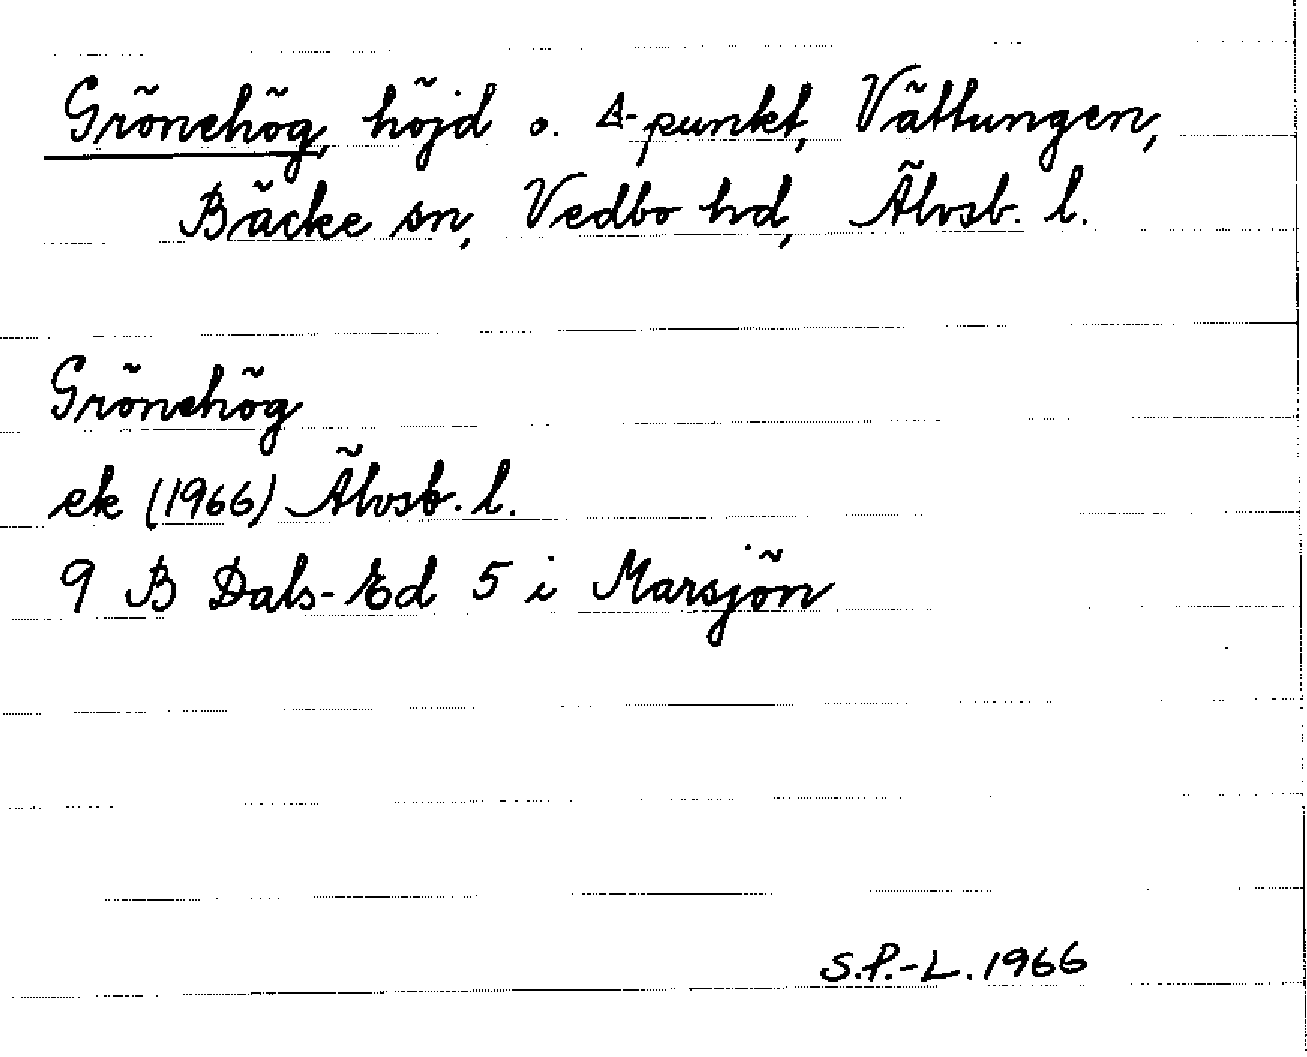 Grönehög, höjd o. Δ-punkt, Vättungen,
Bäcke sn, Vedbo hd, Älvsb. l.
Grönehög
ek (1966) Älvsb. l.
9 B Dals-Ed 5 i Marsjön
S.P.-L. 1966